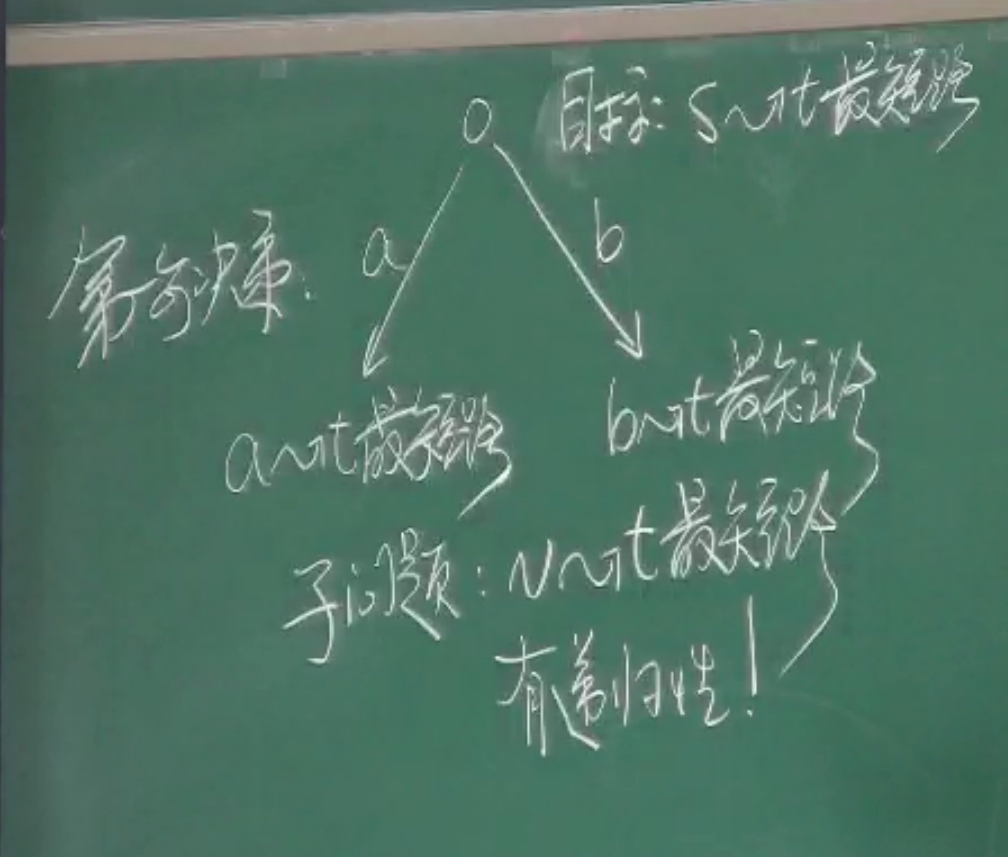 O 目标: s~>t最短路
第一个决策: a b
a~>t最短路 b~>t最短路
子问题: v~>t最短路
有递归性!